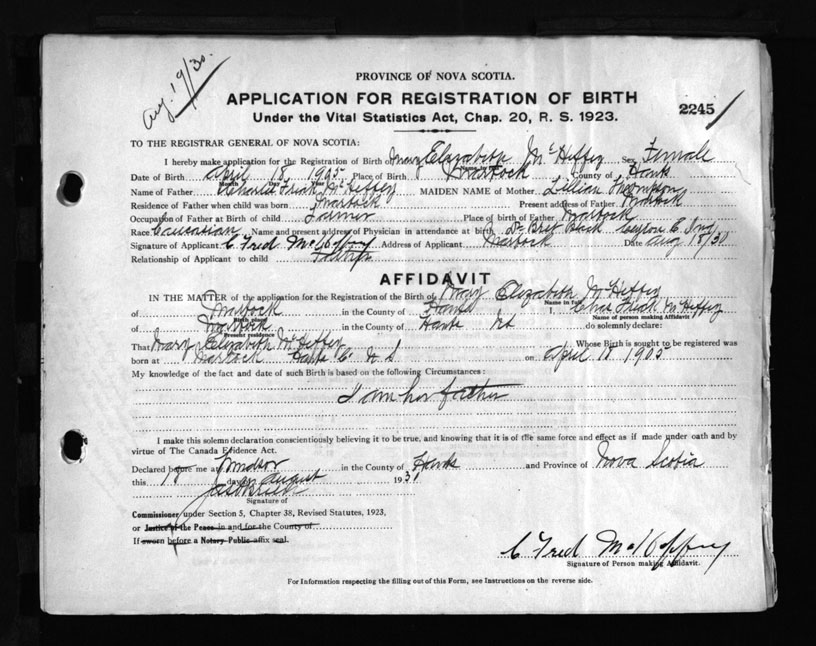 Aug. 19/30.
PROVINCE OF NOVA SCOTIA.
APPLICATION FOR REGISTRATION OF BIRTH
2245
Under the Vital Statistics Act, Chap. 20, R. S. 1923.
TO THE REGISTRAR GENERAL OF NOVA SCOTIA:
I hereby make application for the Registration of Birth of Mary Elizabeth McHeffey Sex Female
Name in full
Date of Birth April 18 1905 Place of Birth Martock County of Hants
Month Day Year
Name of Father Charles Fred McHeffey MAIDEN NAME of Mother Lillian Thompson
Residence of Father when child was born Martock Present address of Father Martock
Occupation of Father at Birth of child Farmer Place of birth of Father Martock
Race Caucasian Name and present address of Physician in attendance at birth Dr Bret Black
Signature of Applicant C Fred McHeffey Address of Applicant Martock Date Aug 18/30
Relationship of Applicant to child Father
AFFIDAVIT
IN THE MATTER of the application for the Registration of the Birth of Mary Elizabeth McHeffey
Name in full
of Martock in the County of Hants I, Chas Fred McHeffey
Birth place Name of person making Affidavit
of Martock in the County of Hants NS do solemnly declare:
Present residence
That Mary Elizabeth McHeffey Whose Birth is sought to be registered was
born at Martock Hants C. N S on April 18 1905
My knowledge of the fact and date of such Birth is based on the following Circumstances:
I am her father
I make this solemn declaration conscientiously believing it to be true, and knowing that it is of the same force and effect as if made under oath and by
virtue of The Canada Evidence Act.
Declared before me at Windsor in the County of Hants and Province of Nova Scotia
this 18 day of August 193
Signature of
Commissioner under Section 5, Chapter 38, Revised Statutes, 1923,
or Justice of the Peace in and for the County of
If sworn before a Notary Public affix seal.
C Fred McHeffey
Signature of Person making Affidavit.
For Information respecting the filling out of this Form, see Instructions on the reverse side.